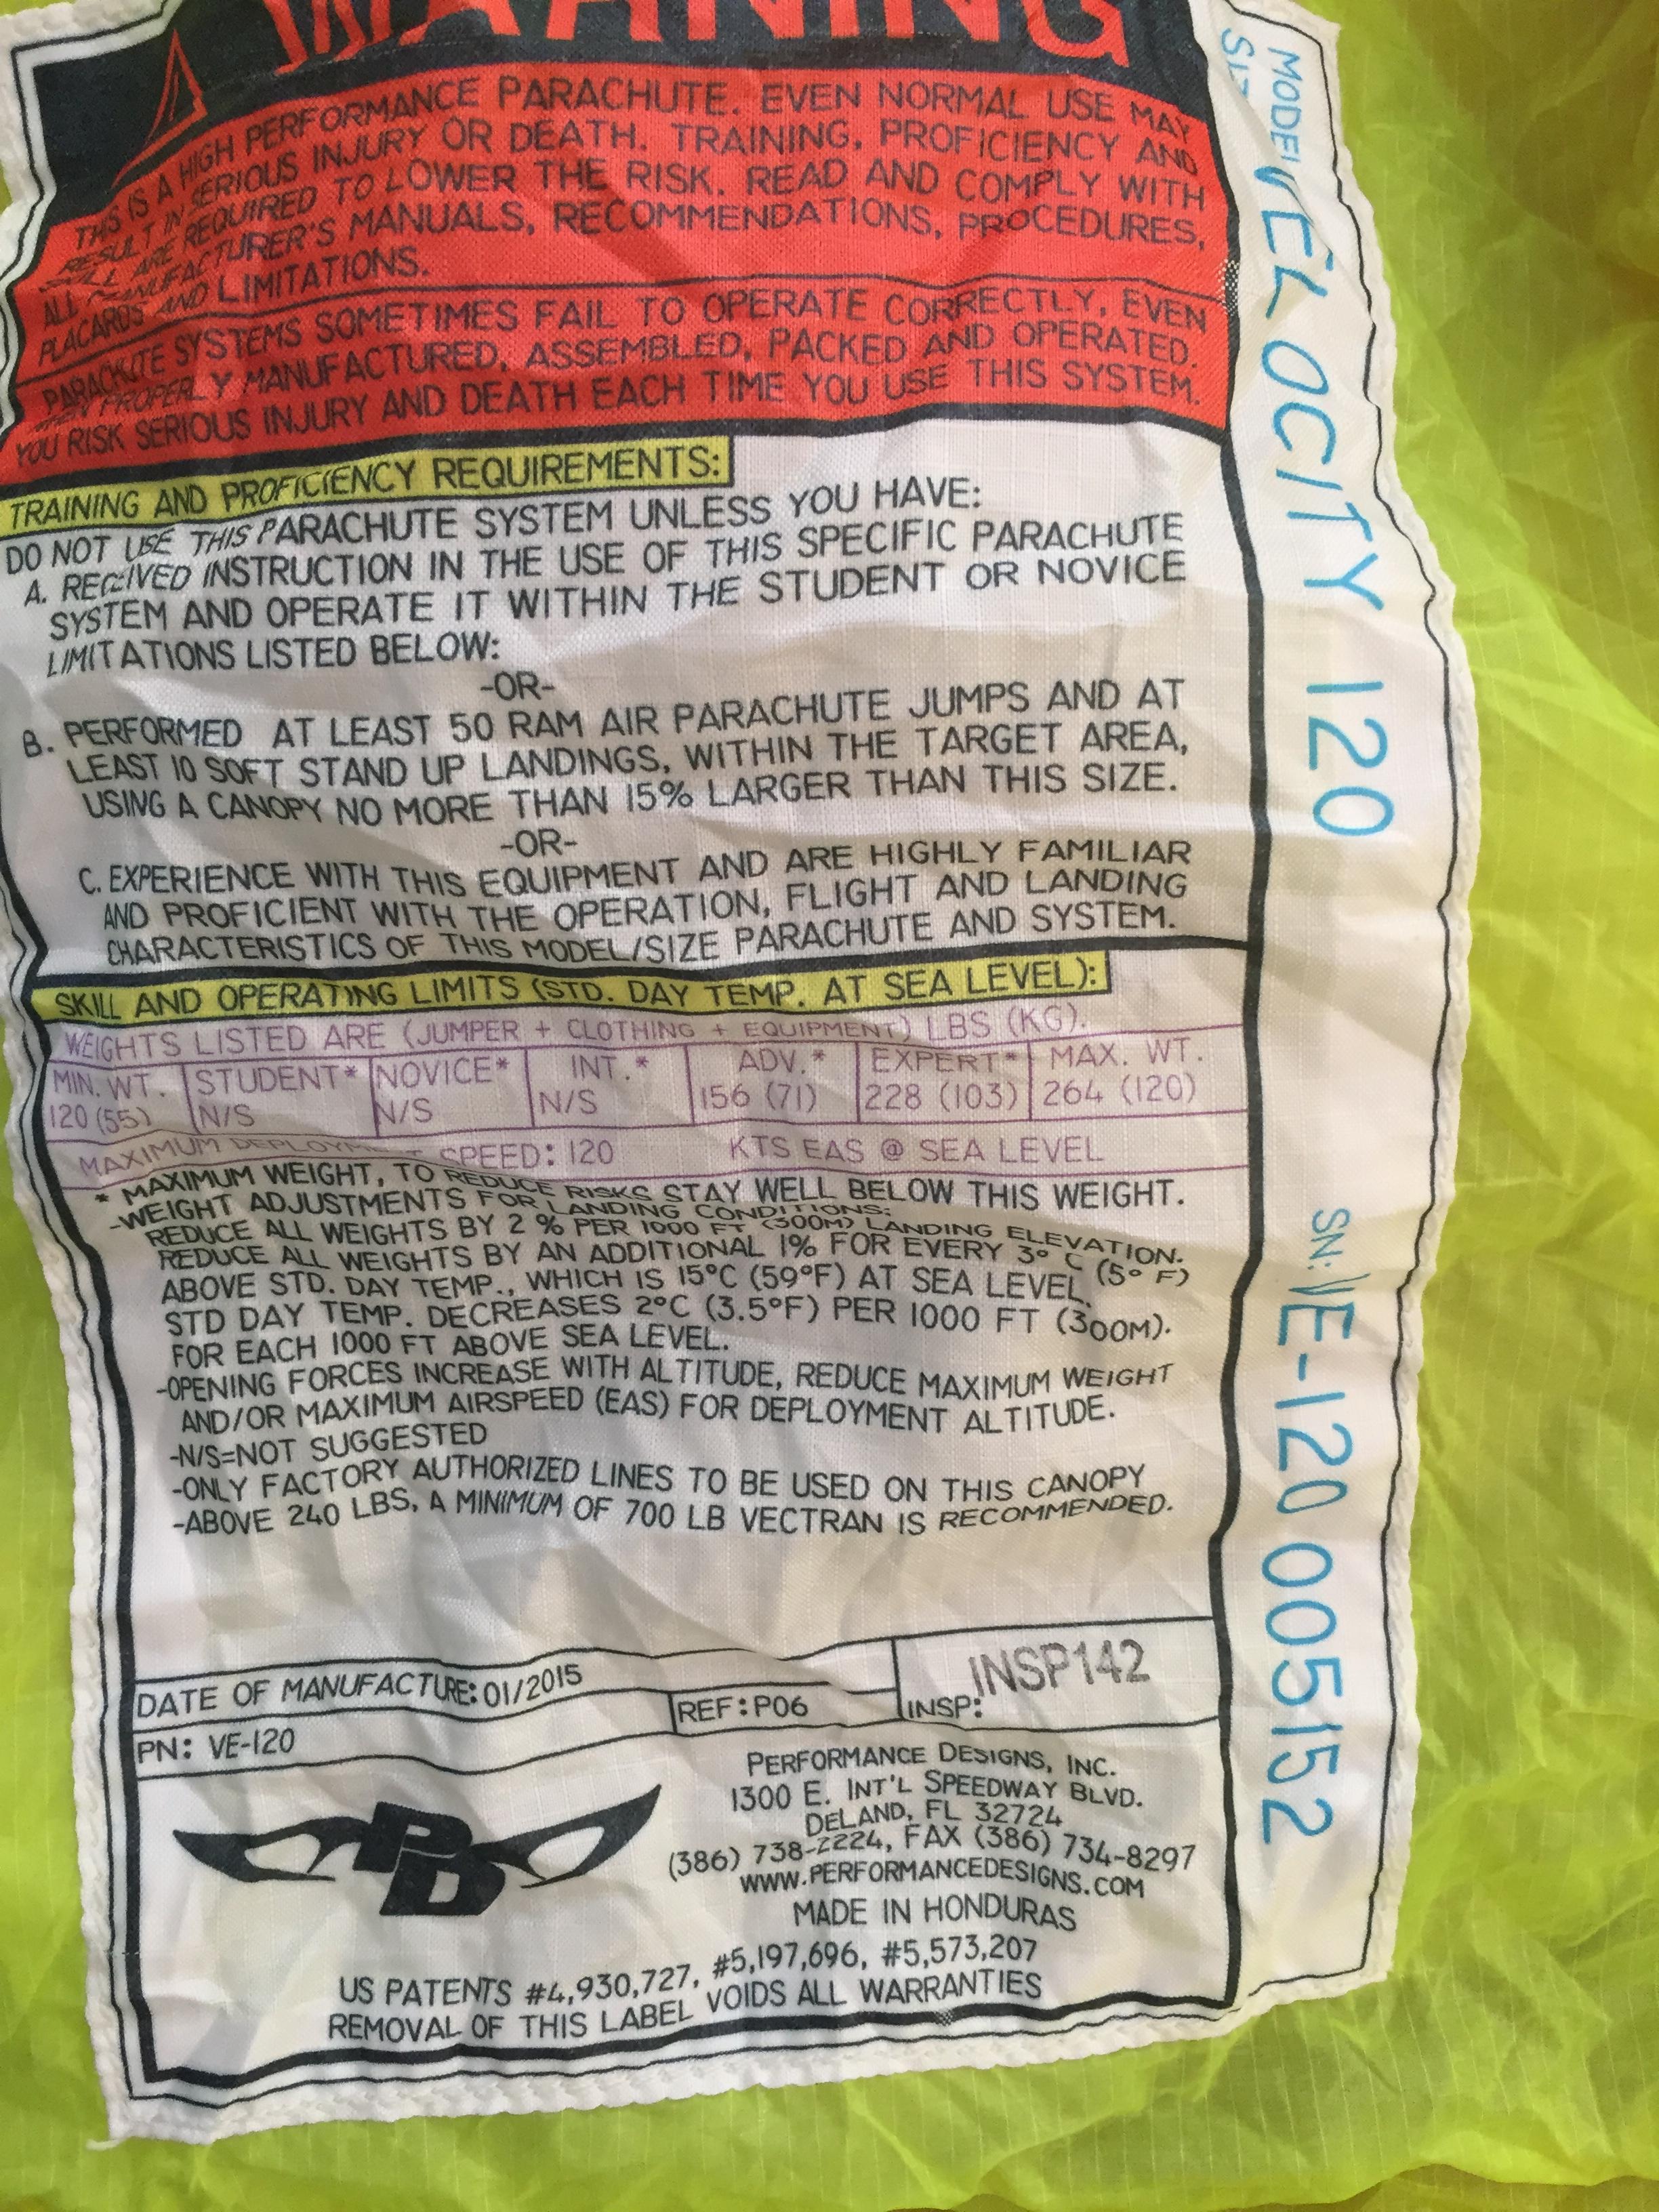 WARNING
THIS IS A HIGH PERFORMANCE PARACHUTE. EVEN NORMAL USE MAY
RESULT IN SERIOUS INJURY OR DEATH. TRAINING, PROFICIENCY AND
SKILL ARE REQUIRED TO LOWER THE RISK. READ AND COMPLY WITH
ALL MANUFACTURER'S MANUALS, RECOMMENDATIONS, PROCEDURES,
PLACARDS AND LIMITATIONS.
PARACHUTE SYSTEMS SOMETIMES FAIL TO OPERATE CORRECTLY, EVEN
WHEN PROPERLY MANUFACTURED, ASSEMBLED, PACKED AND OPERATED.
YOU RISK SERIOUS INJURY AND DEATH EACH TIME YOU USE THIS SYSTEM.
TRAINING AND PROFICIENCY REQUIREMENTS:
DO NOT USE THIS PARACHUTE SYSTEM UNLESS YOU HAVE:
A. RECEIVED INSTRUCTION IN THE USE OF THIS SPECIFIC PARACHUTE
SYSTEM AND OPERATE IT WITHIN THE STUDENT OR NOVICE
LIMITATIONS LISTED BELOW:
-OR-
B. PERFORMED AT LEAST 50 RAM AIR PARACHUTE JUMPS AND AT
LEAST 10 SOFT STAND UP LANDINGS, WITHIN THE TARGET AREA,
USING A CANOPY NO MORE THAN 15% LARGER THAN THIS SIZE.
-OR-
C. EXPERIENCE WITH THIS EQUIPMENT AND ARE HIGHLY FAMILIAR
AND PROFICIENT WITH THE OPERATION, FLIGHT AND LANDING
CHARACTERISTICS OF THIS MODEL/SIZE PARACHUTE AND SYSTEM.
SKILL AND OPERATING LIMITS (STD. DAY TEMP. AT SEA LEVEL):
WEIGHTS LISTED ARE (JUMPER + CLOTHING + EQUIPMENT) LBS (KG).
MIN. WT. STUDENT* NOVICE* INT.* ADV.* EXPERT* MAX. WT.
120 (55) N/S N/S N/S 156 (71) 228 (103) 264 (120)
MAXIMUM DEPLOYMENT SPEED: 120 KTS EAS @ SEA LEVEL
* MAXIMUM WEIGHT, TO REDUCE RISKS STAY WELL BELOW THIS WEIGHT.
-WEIGHT ADJUSTMENTS FOR LANDING CONDITIONS:
REDUCE ALL WEIGHTS BY 2 % PER 1000 FT (300M) LANDING ELEVATION.
REDUCE ALL WEIGHTS BY AN ADDITIONAL 1% FOR EVERY 3° C (5° F)
ABOVE STD. DAY TEMP., WHICH IS 15°C (59°F) AT SEA LEVEL.
STD DAY TEMP. DECREASES 2°C (3.5°F) PER 1000 FT (300M).
FOR EACH 1000 FT ABOVE SEA LEVEL.
-OPENING FORCES INCREASE WITH ALTITUDE, REDUCE MAXIMUM WEIGHT
AND/OR MAXIMUM AIRSPEED (EAS) FOR DEPLOYMENT ALTITUDE.
-N/S=NOT SUGGESTED
-ONLY FACTORY AUTHORIZED LINES TO BE USED ON THIS CANOPY
-ABOVE 240 LBS, A MINIMUM OF 700 LB VECTRAN IS RECOMMENDED.
DATE OF MANUFACTURE: 01/2015
REF: P06
INSP: INSP142
PN: VE-120
PD
PERFORMANCE DESIGNS, INC.
1300 E. INT'L SPEEDWAY BLVD.
DELAND, FL 32724
(386) 738-2224, FAX (386) 734-8297
WWW.PERFORMANCEDESIGNS.COM
MADE IN HONDURAS
US PATENTS #4,930,727, #5,197,696, #5,573,207
REMOVAL OF THIS LABEL VOIDS ALL WARRANTIES
MODEL VELOCITY 120
SN: VE-120 005152